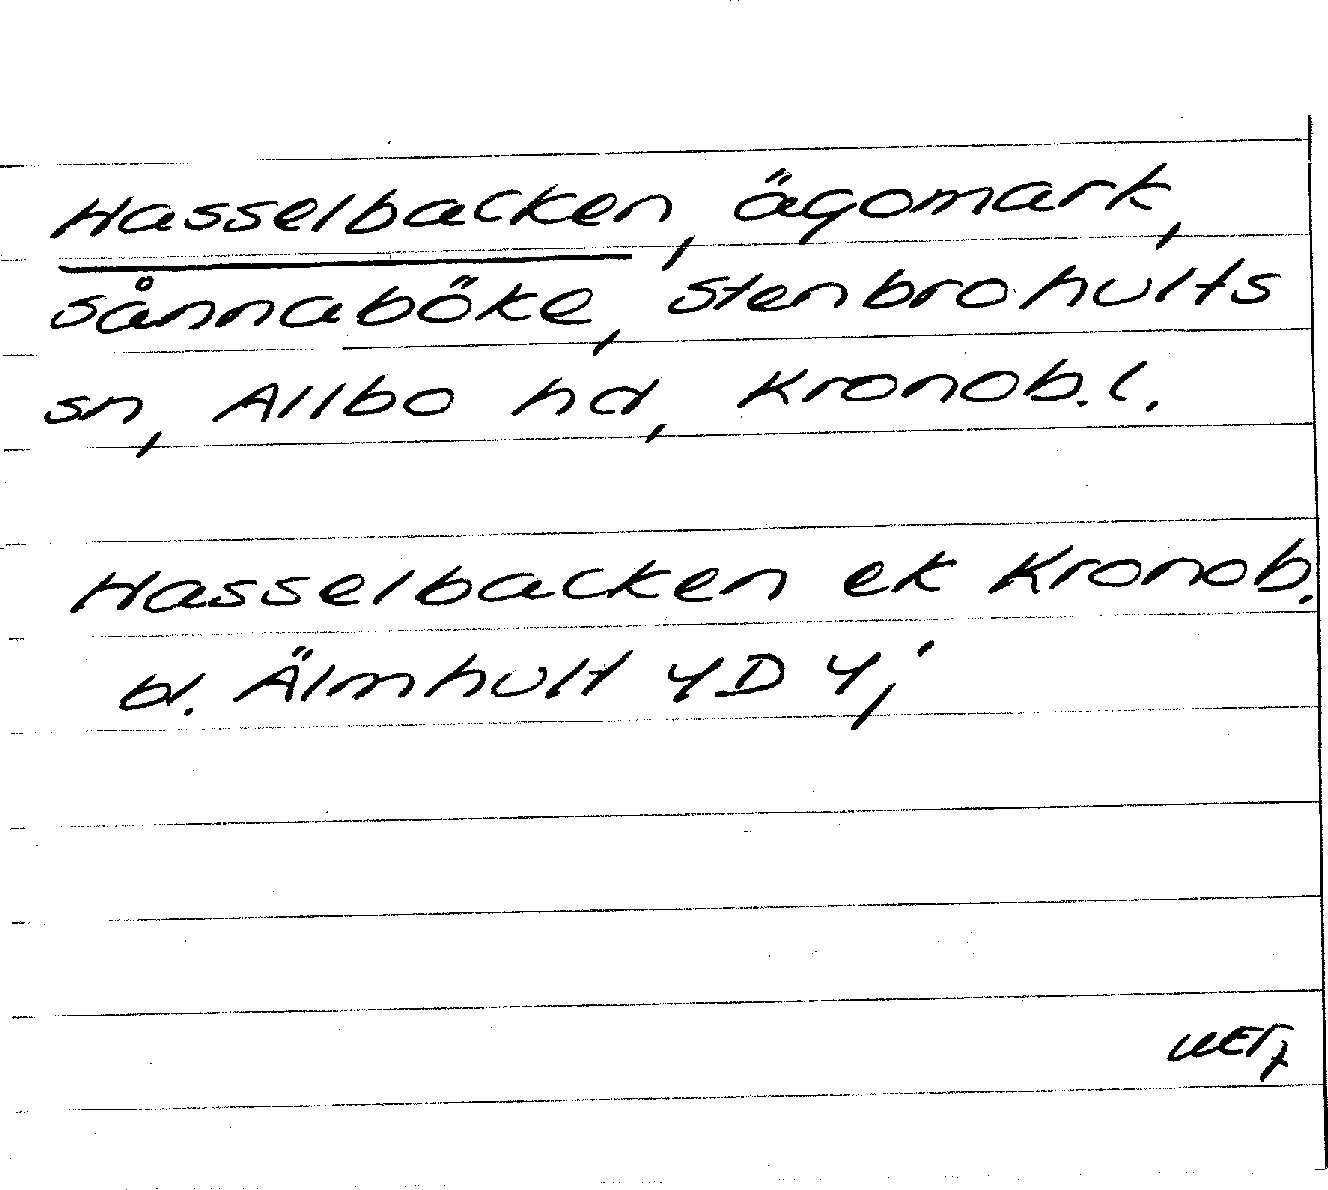 Hasselbacken, ägomark,
Sånnaböke, Stenbrohults
sn, Allbo hd, Kronob. l.
Hasselbacken ek Kronob.
bl. Älmhult 4D 4,